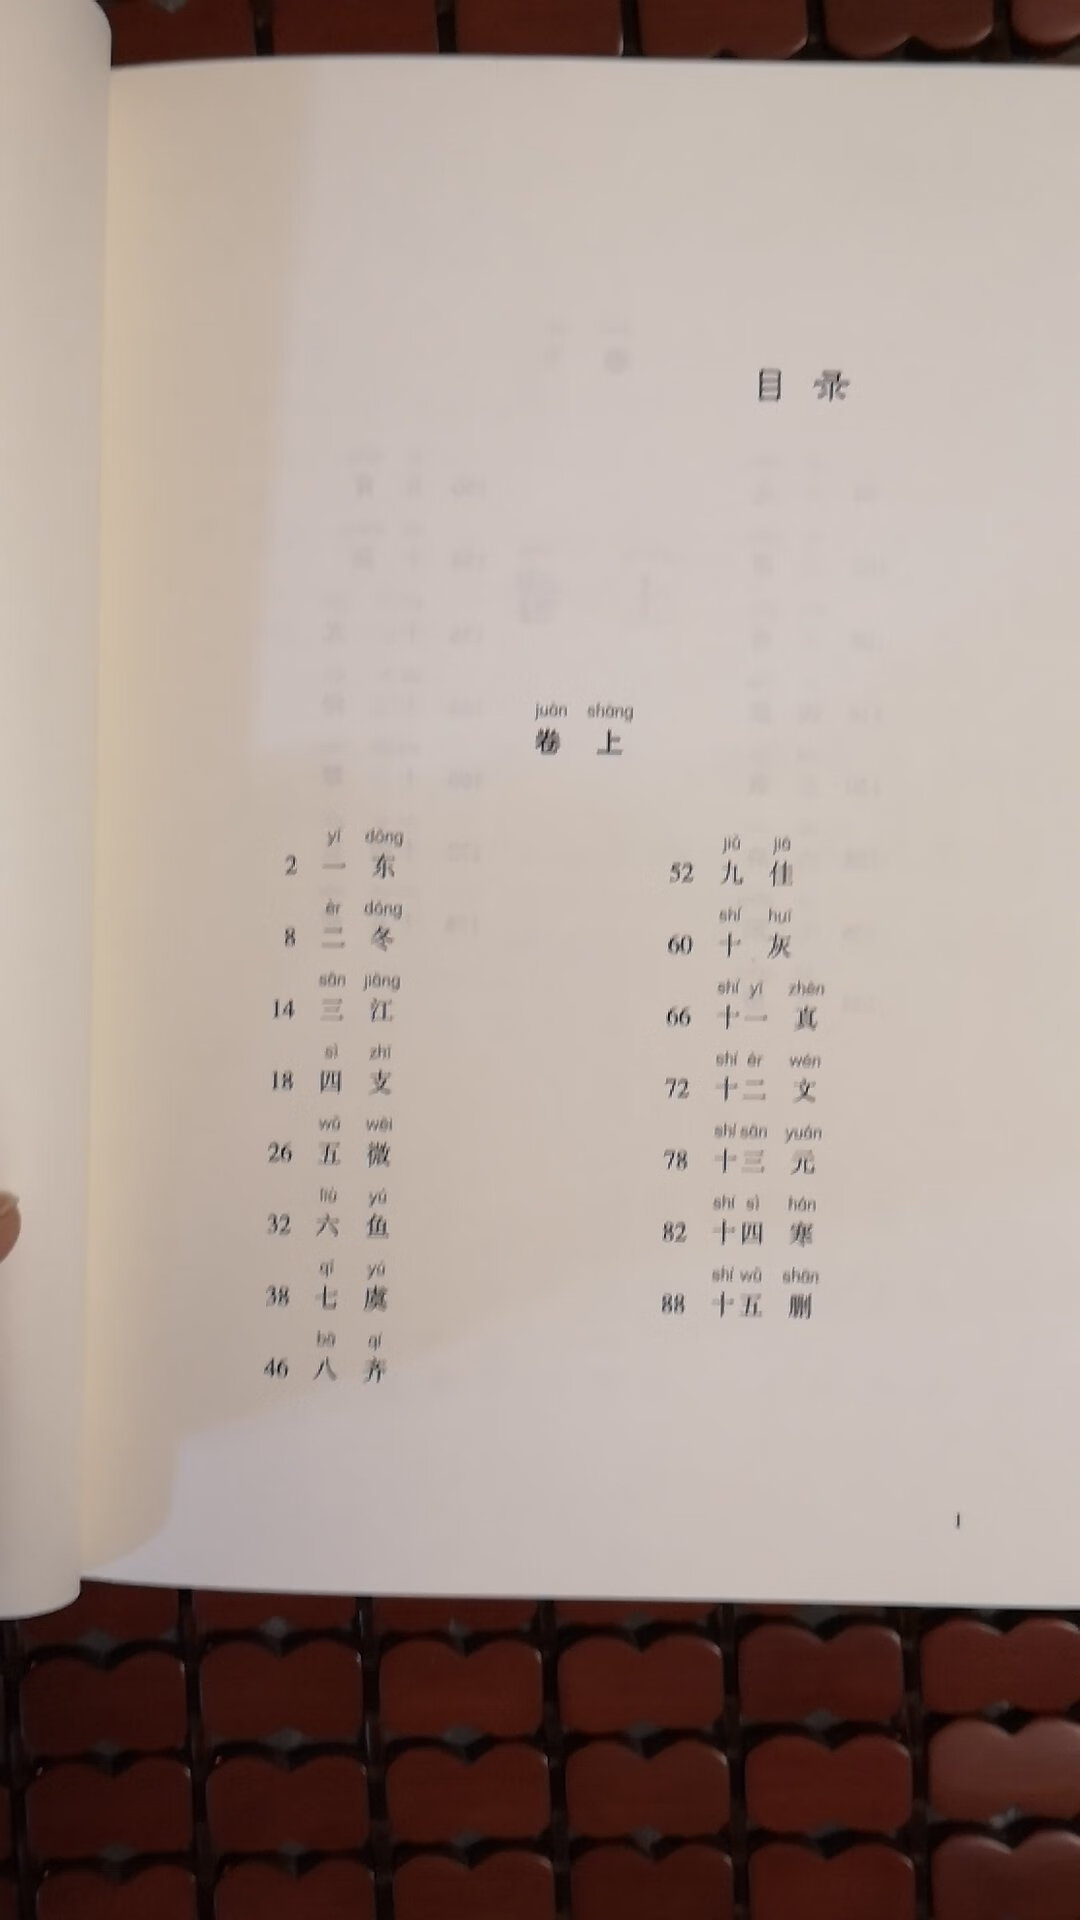 目录
juàn shàng
卷上
yī dōng
2 一 东
èr dōng
8 二 冬
sān jiāng
14 三 江
sì zhī
18 四 支
wǔ wēi
26 五 微
liù yú
32 六 鱼
qī yú
38 七 虞
bā qí
46 八 齐
jiǔ jiā
52 九 佳
shí huī
60 十 灰
shí yī zhēn
66 十一 真
shí èr wén
72 十二 文
shí sān yuán
78 十三 元
shí sì hán
82 十四 寒
shí wǔ shān
88 十五 删
1